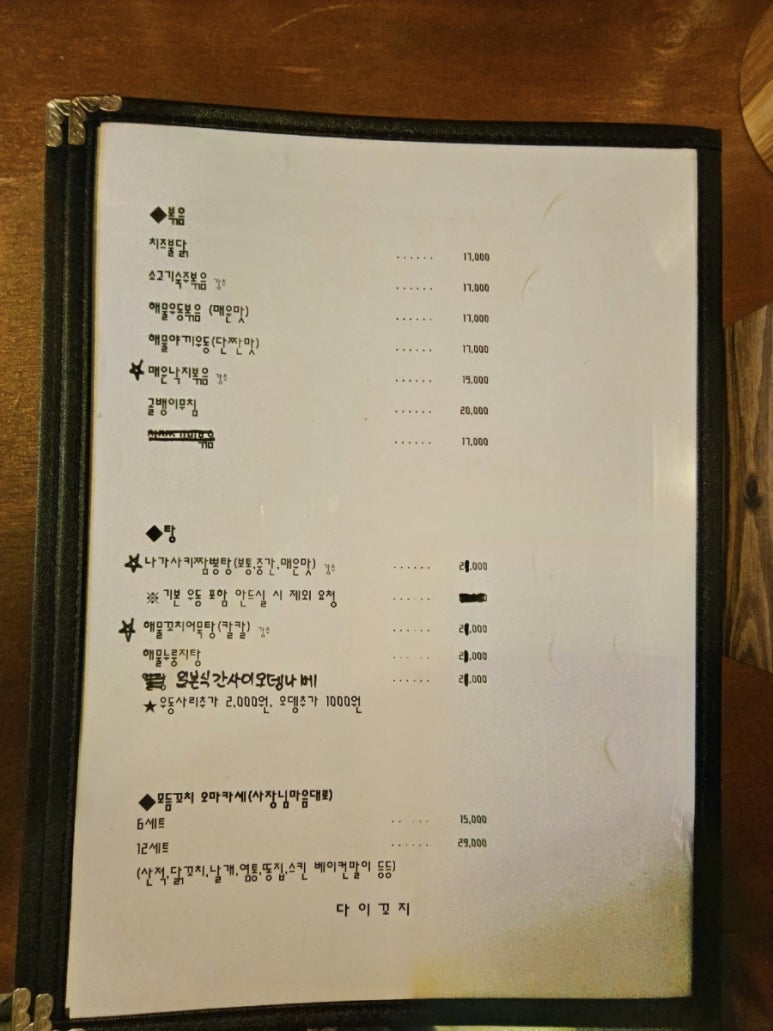 ◆볶음
치즈불닭 ...... 17,000
소고기숙주볶음 강추 ...... 17,000
해물우동볶음 (매운맛) ...... 17,000
해물야끼우동(단짠맛) ...... 17,000
☆ 매운낙지볶음 강추 ...... 19,000
골뱅이무침 ...... 20,000
볶음 ...... 17,000
◆탕
☆ 나가사키짬뽕탕(보통,중간,매운맛) 강추 ...... 21,000
※ 기본 우동 포함 안드실 시 제외 요청 ......
☆ 해물꼬치어묵탕(칼칼) 강추 ...... 21,000
해물누룽지탕 ...... 21,000
일본식간사이오뎅나베 ...... 21,000
★우동사리추가 2,000원, 오뎅추가 1000원
◆모듬꼬치 오마카세(사장님마음대로)
6세트 ...... 15,000
12세트 ...... 29,000
(산적,닭꼬치,날개,염통,똥집,스킨 베이컨말이 등등)
다 이 꼬 지